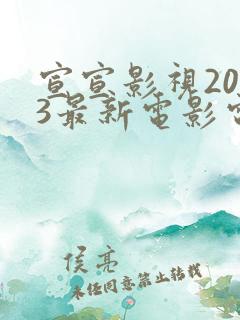 宣宣影視20
3最新電影電
侯亮
未任同意禁止转载